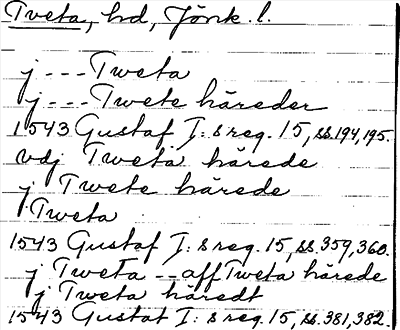 Tveta, hd, Jönk. l.
j --- Tweta
j --- Twete häreder
1543 Gustaf I:s reg. 15, ss. 194, 195.
vdj Tweta härede
j Twete härede
Tweta
1543 Gustaf I:s reg. 15, ss. 359, 360.
j Tweta -- aff Tweta härede
j Tweta häredt
1543 Gustaf I:s reg. 15, ss. 381, 382.